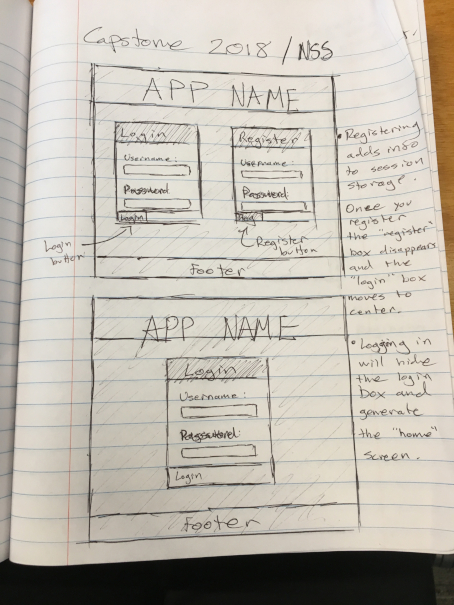 Capstone 2018 / NSS
APP NAME
Login
Register
Username:
Username:
Password
Password
Login
Login
button
Register
button
Footer
• Registering
adds info
to session
storage.
Once you
register
the "register"
box disappears
and the
"login" box
moves to
center.
APP NAME
Login
Username:
Password:
Login
Footer
• Logging in
will hide
the login
box and
generate
the "home"
screen.